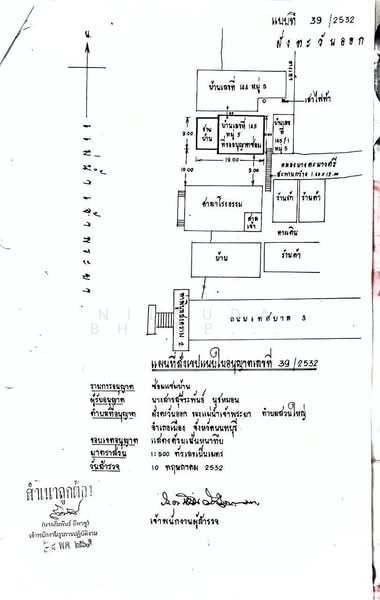 แผนที่ 39/2532
ฝั่งตะวันออก
น.
แม่น้ำเจ้าพระยา
บ้านเลขที่ 144 หมู่ 5
เสาไฟฟ้า
บ้านเลขที่ 145
หมู่ 5
ที่ขออนุญาตซ่อม
ชานบ้าน
บ้านเลขที่ 145/1 หมู่ 5
9.00
19.00
3.00
สะพานกว้าง
ศาลาโรงธรรม
ศาลเจ้า
ร้านค้า
ร้านค้า
ทางเดิน
บ้าน
ร้านค้า
ถนนเทศบาล 3
แผนที่สังเขปแนบใบอนุญาตเลขที่ 39/2532
รายการอนุญาต ซ่อมแซมบ้าน
ผู้รับอนุญาต
ตำบลที่อนุญาต ฝั่งตะวันออก ของแม่น้ำเจ้าพระยา ตำบลสวนใหญ่
อำเภอเมือง จังหวัดนนทบุรี
ขอบเขตอนุญาต แสดงด้วยเส้นหนาทึบ
มาตราส่วน 1:500 ทั่วเลขเป็นเมตร
วันสำรวจ 10 พฤษภาคม 2532
สำเนาถูกต้อง
เจ้าพนักงานธุรการปฏิบัติงาน
เจ้าพนักงานผู้สำรวจ